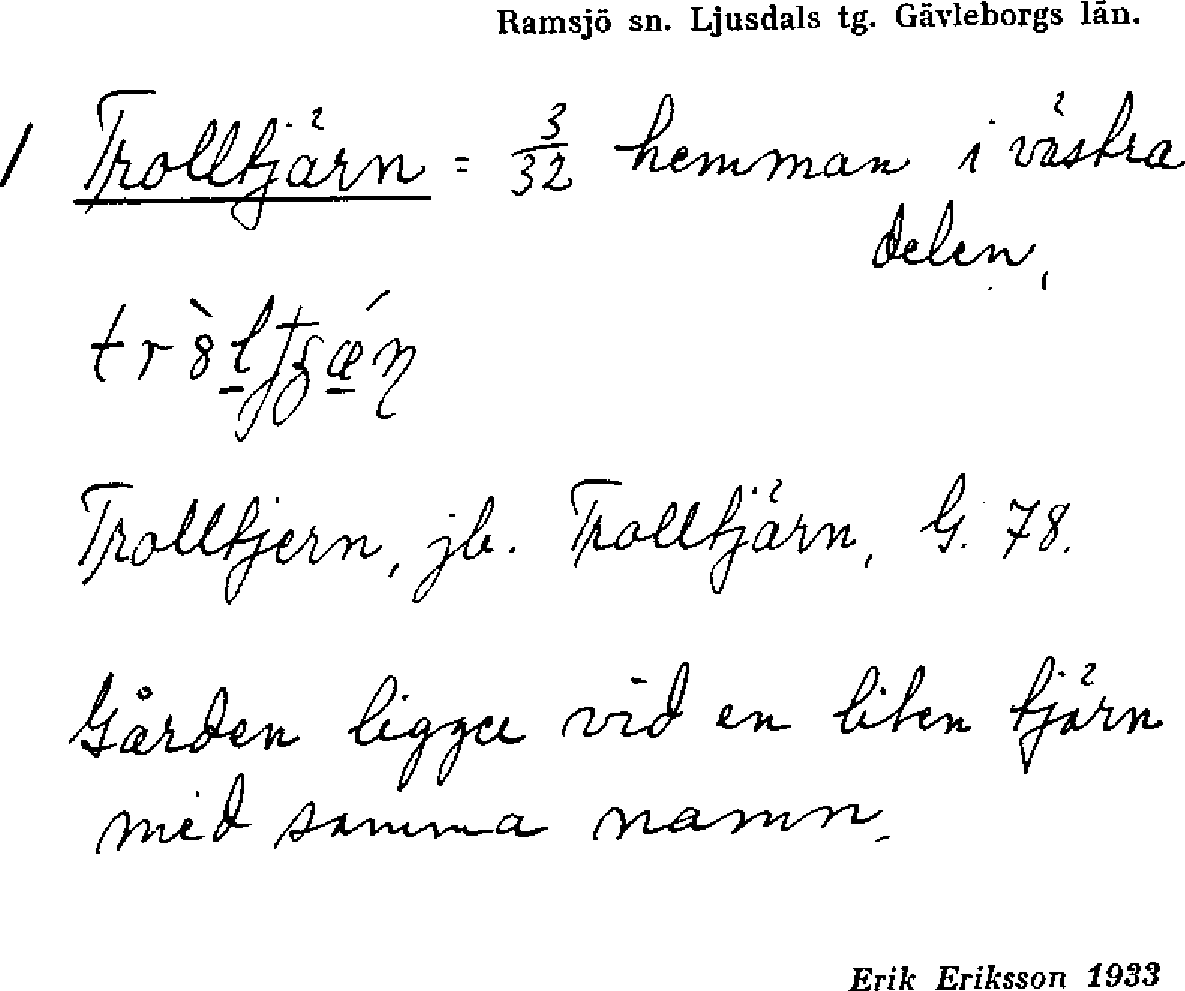 Ramsjö sn. Ljusdals tg. Gävleborgs län.
1 Trolltjärn = 3/32 hemman i västra
delen,
Trolltjern, jb. Trolltjärn, G. 78.
Gården ligger vid en liten tjärn
med samma namn.
Erik Eriksson 1933